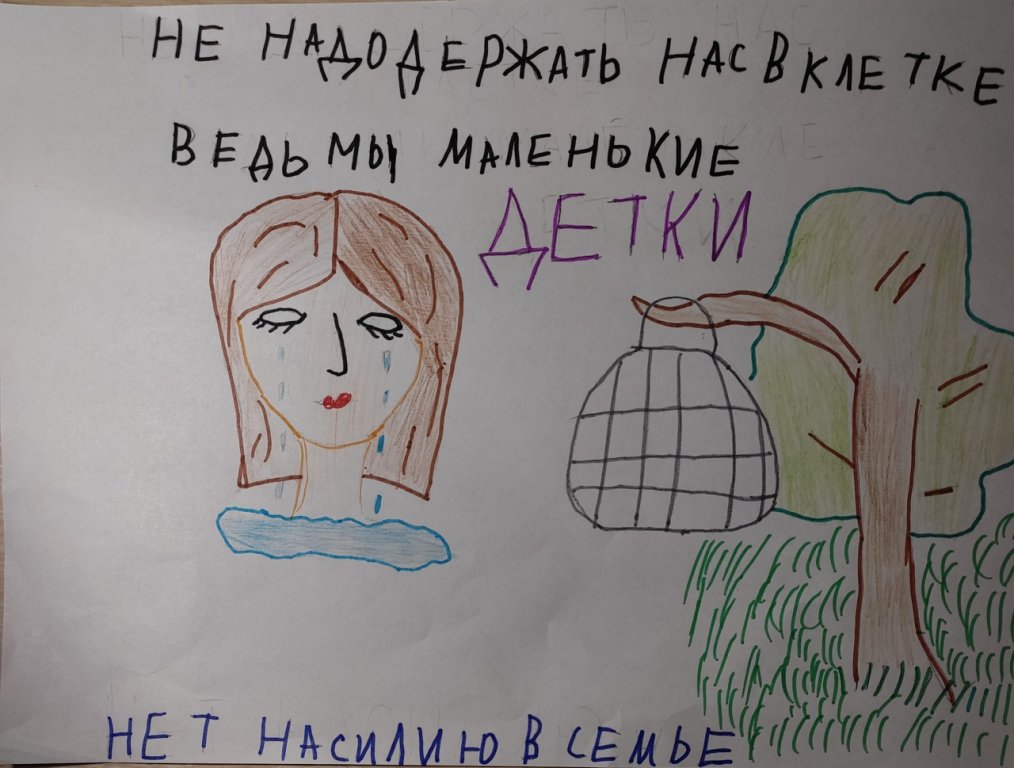 НЕ НАДО ДЕРЖАТЬ НАС В КЛЕТКЕ
ВЕДЬ МЫ МАЛЕНЬКИЕ
ДЕТКИ
НЕТ НАСИЛИЮ В СЕМЬЕ